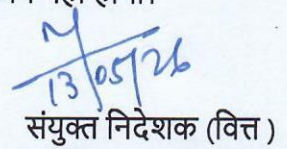 13/05/26
संयुक्त निदेशक (वित्त)